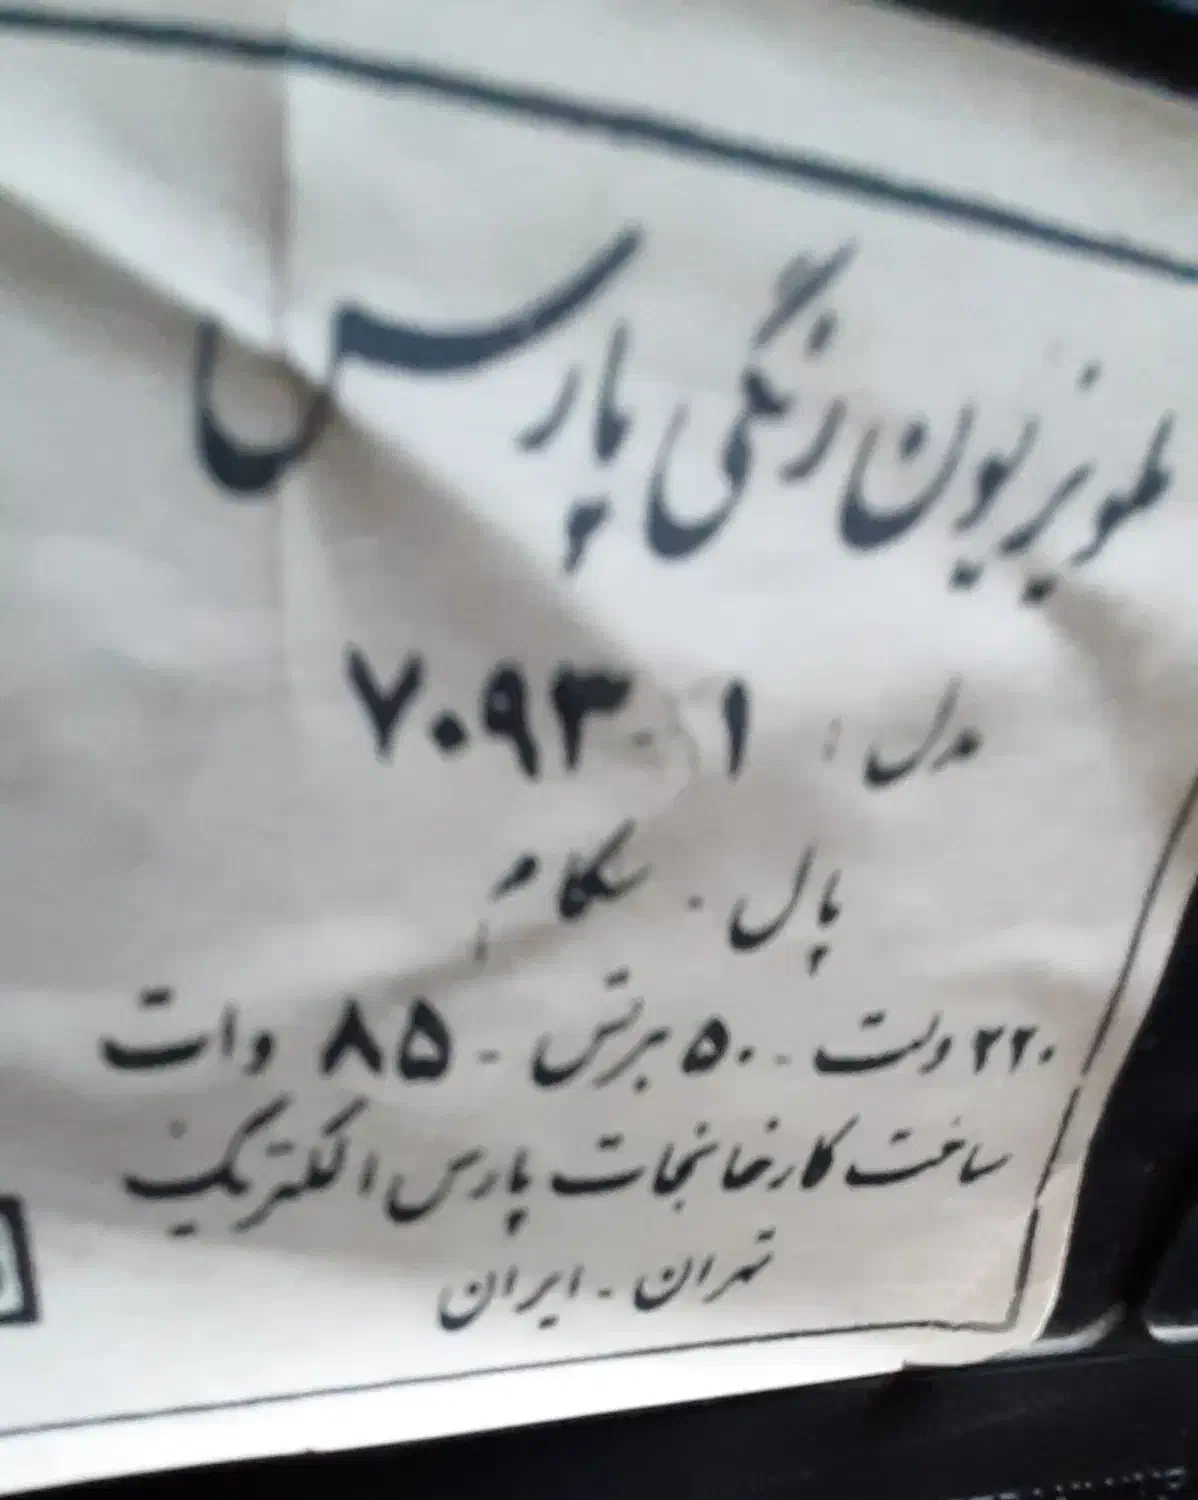 تلویزیون رنگی پارس
مدل : ۷۰۹۳۰۱
پال - سکام
۲۲۰ ولت - ۵۰ هرتس - ۸۵ وات
ساخت کارخانجات پارس الکتریک
تهران - ایران